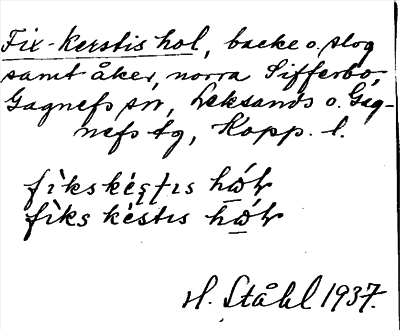 Fix-Kerstis hol, backe o. skog
samt åker, norra Sifferbo,
Gagnefs sn, Leksands o. Gag-
nefs tg, Kopp. l.
fìks kéʂtɪs
fìks késtɪs
H. Ståhl 1937.